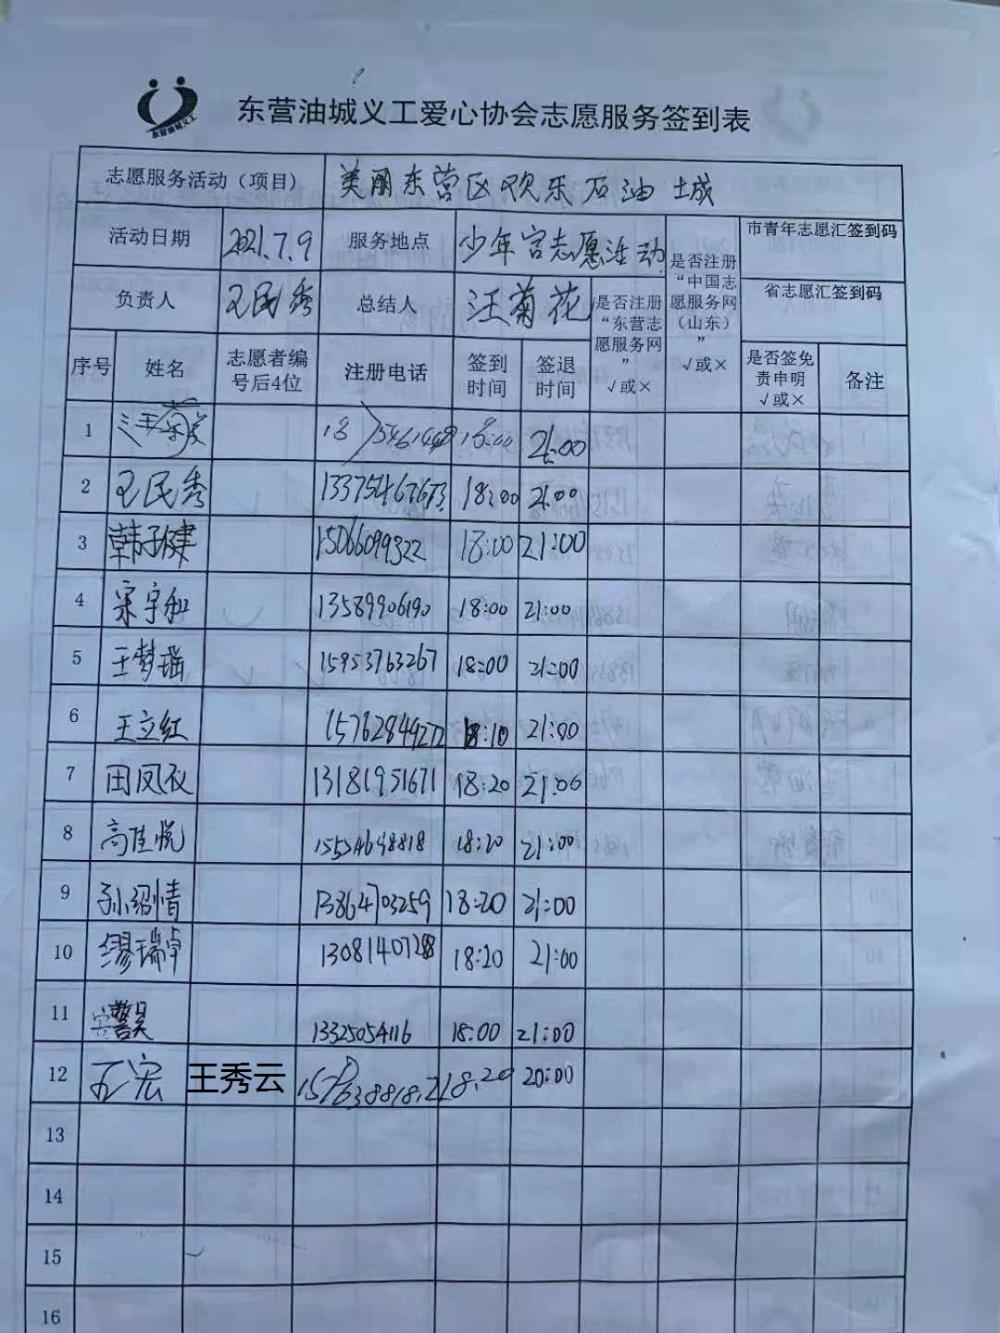 东营油城义工
东营油城义工爱心协会志愿服务签到表
志愿服务活动（项目） 美丽东营区欢乐石油城
活动日期 2021.7.9 服务地点 少年宫志愿活动 是否注册“中国志愿服务网（山东）” √或× 市青年志愿汇签到码
负责人 王民秀 总结人 汪菊花 是否注册“东营志愿服务网” √或× 省志愿汇签到码
序号 姓名 志愿者编号后4位 注册电话 签到时间 签退时间 是否签免责申明 √或× 备注
1 18:00 21:00
2 王民秀 18:00 21:00
3 韩子健 15066099322 18:00 21:00
4 宋宇和 13589906190 18:00 21:00
5 王梦瑶 15953763267 18:00 21:00
6 王立红 15762849272 18:10 21:00
7 田凤衣 13181951671 18:20 21:00
8 高佳悦 15554648818 18:20 21:00
9 孙绍情 13864703259 18:20 21:00
10 缪瑞卓 18:20 21:00
11 13325054116 18:00 21:00
12 王秀云 18:20 20:00
13
14
15
16